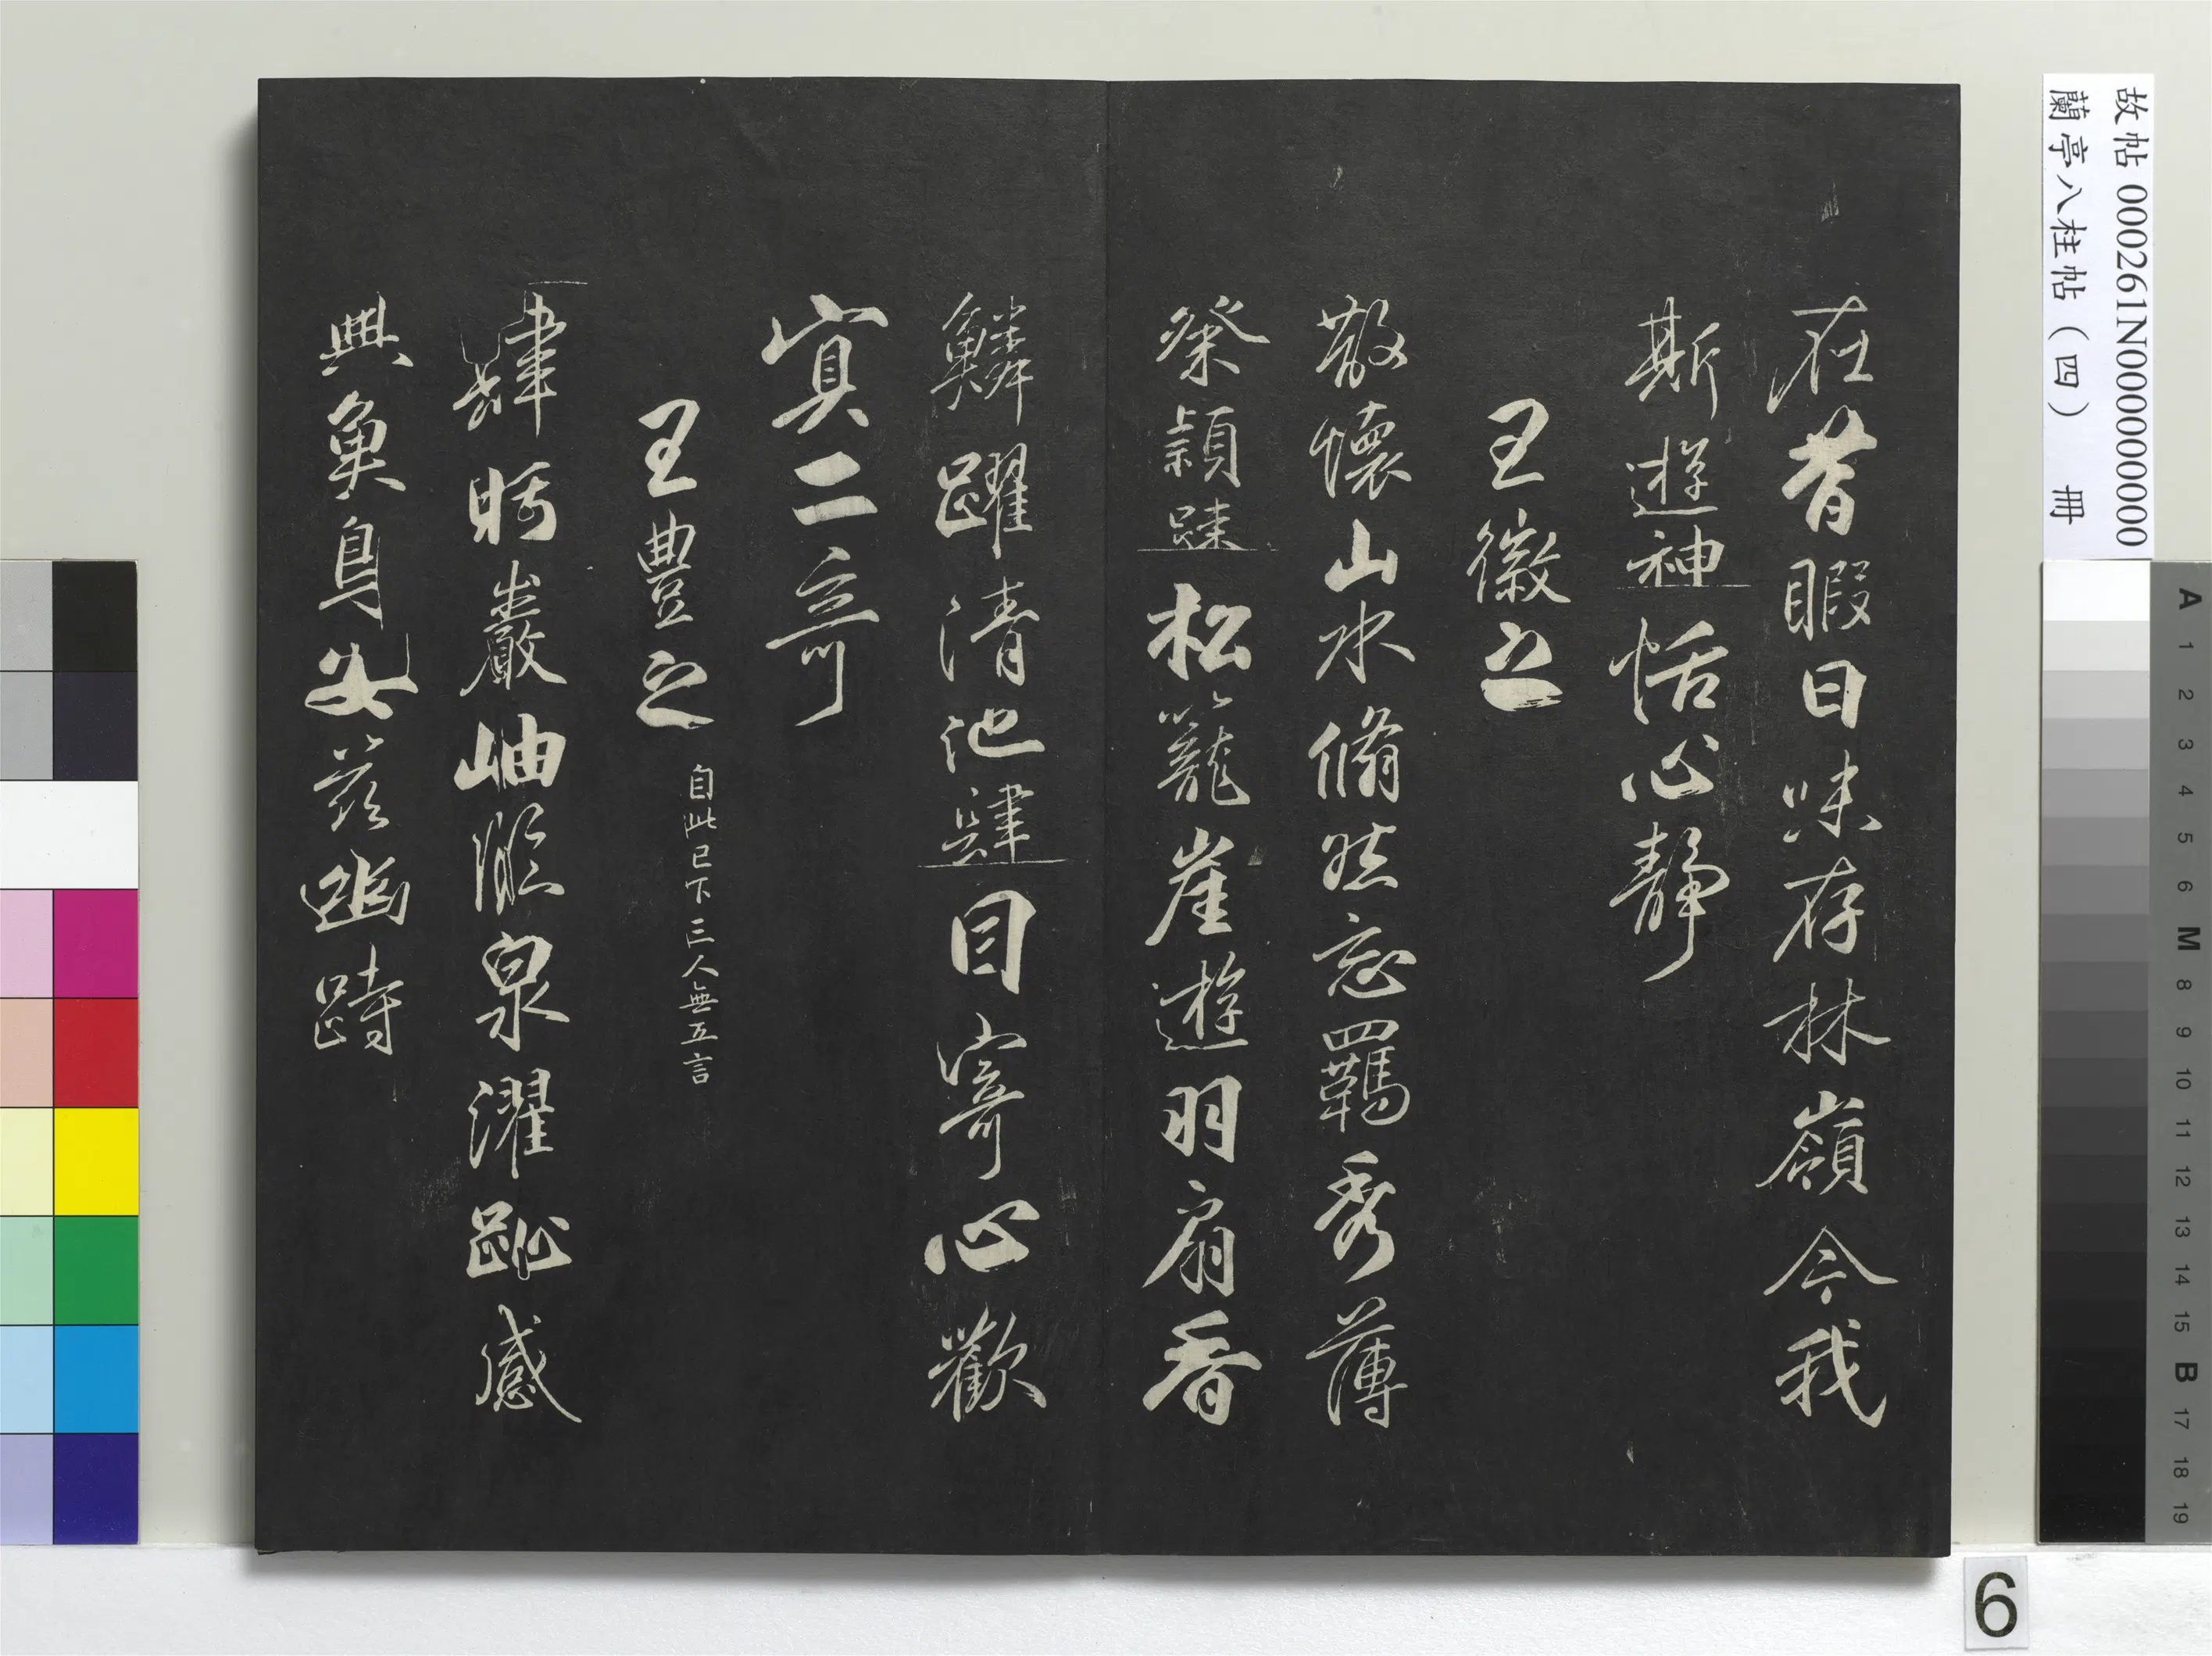 在昔暇日味存林嶺今我
斯遊神恬心靜
王徽之
散懷山水翛然忘羈秀薄
粲穎踈松籠崖遊羽扇霄
鱗躍清池肆目寄心歡
寘二奇
王豐之 自此已下三人無五言
肆眄巖岫臨泉濯趾感
興魚鳥安茲幽跱
故帖 000261N000000000
蘭亭八柱帖（四） 冊
A 1 2 3 4 5 6 M 8 9 10 11 12 13 14 15 B 17 18 19
6